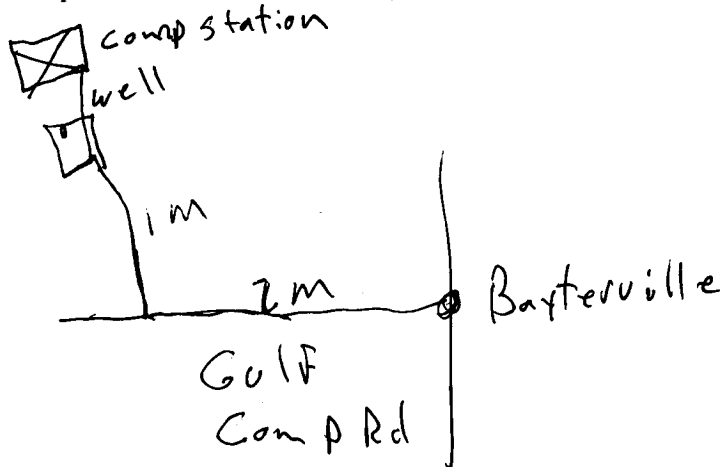 comp station
well
1 m
2 m
Baxterville
Gulf
Comp Rd